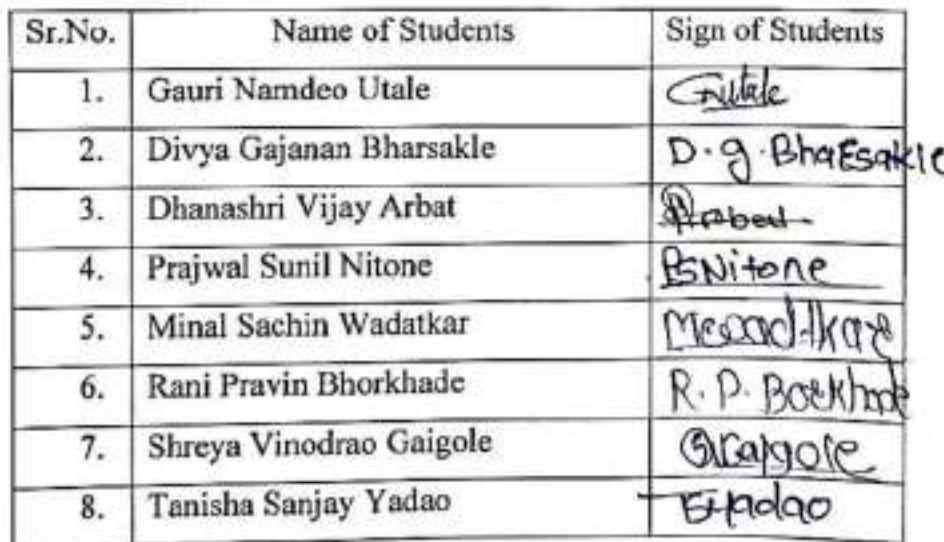 Sr.No. Name of Students Sign of Students
1. Gauri Namdeo Utale GUtale
2. Divya Gajanan Bharsakle D.g.Bharsakle
3. Dhanashri Vijay Arbat
4. Prajwal Sunil Nitone PSNitone
5. Minal Sachin Wadatkar
6. Rani Pravin Bhorkhade R.P.
7. Shreya Vinodrao Gaigole
8. Tanisha Sanjay Yadao